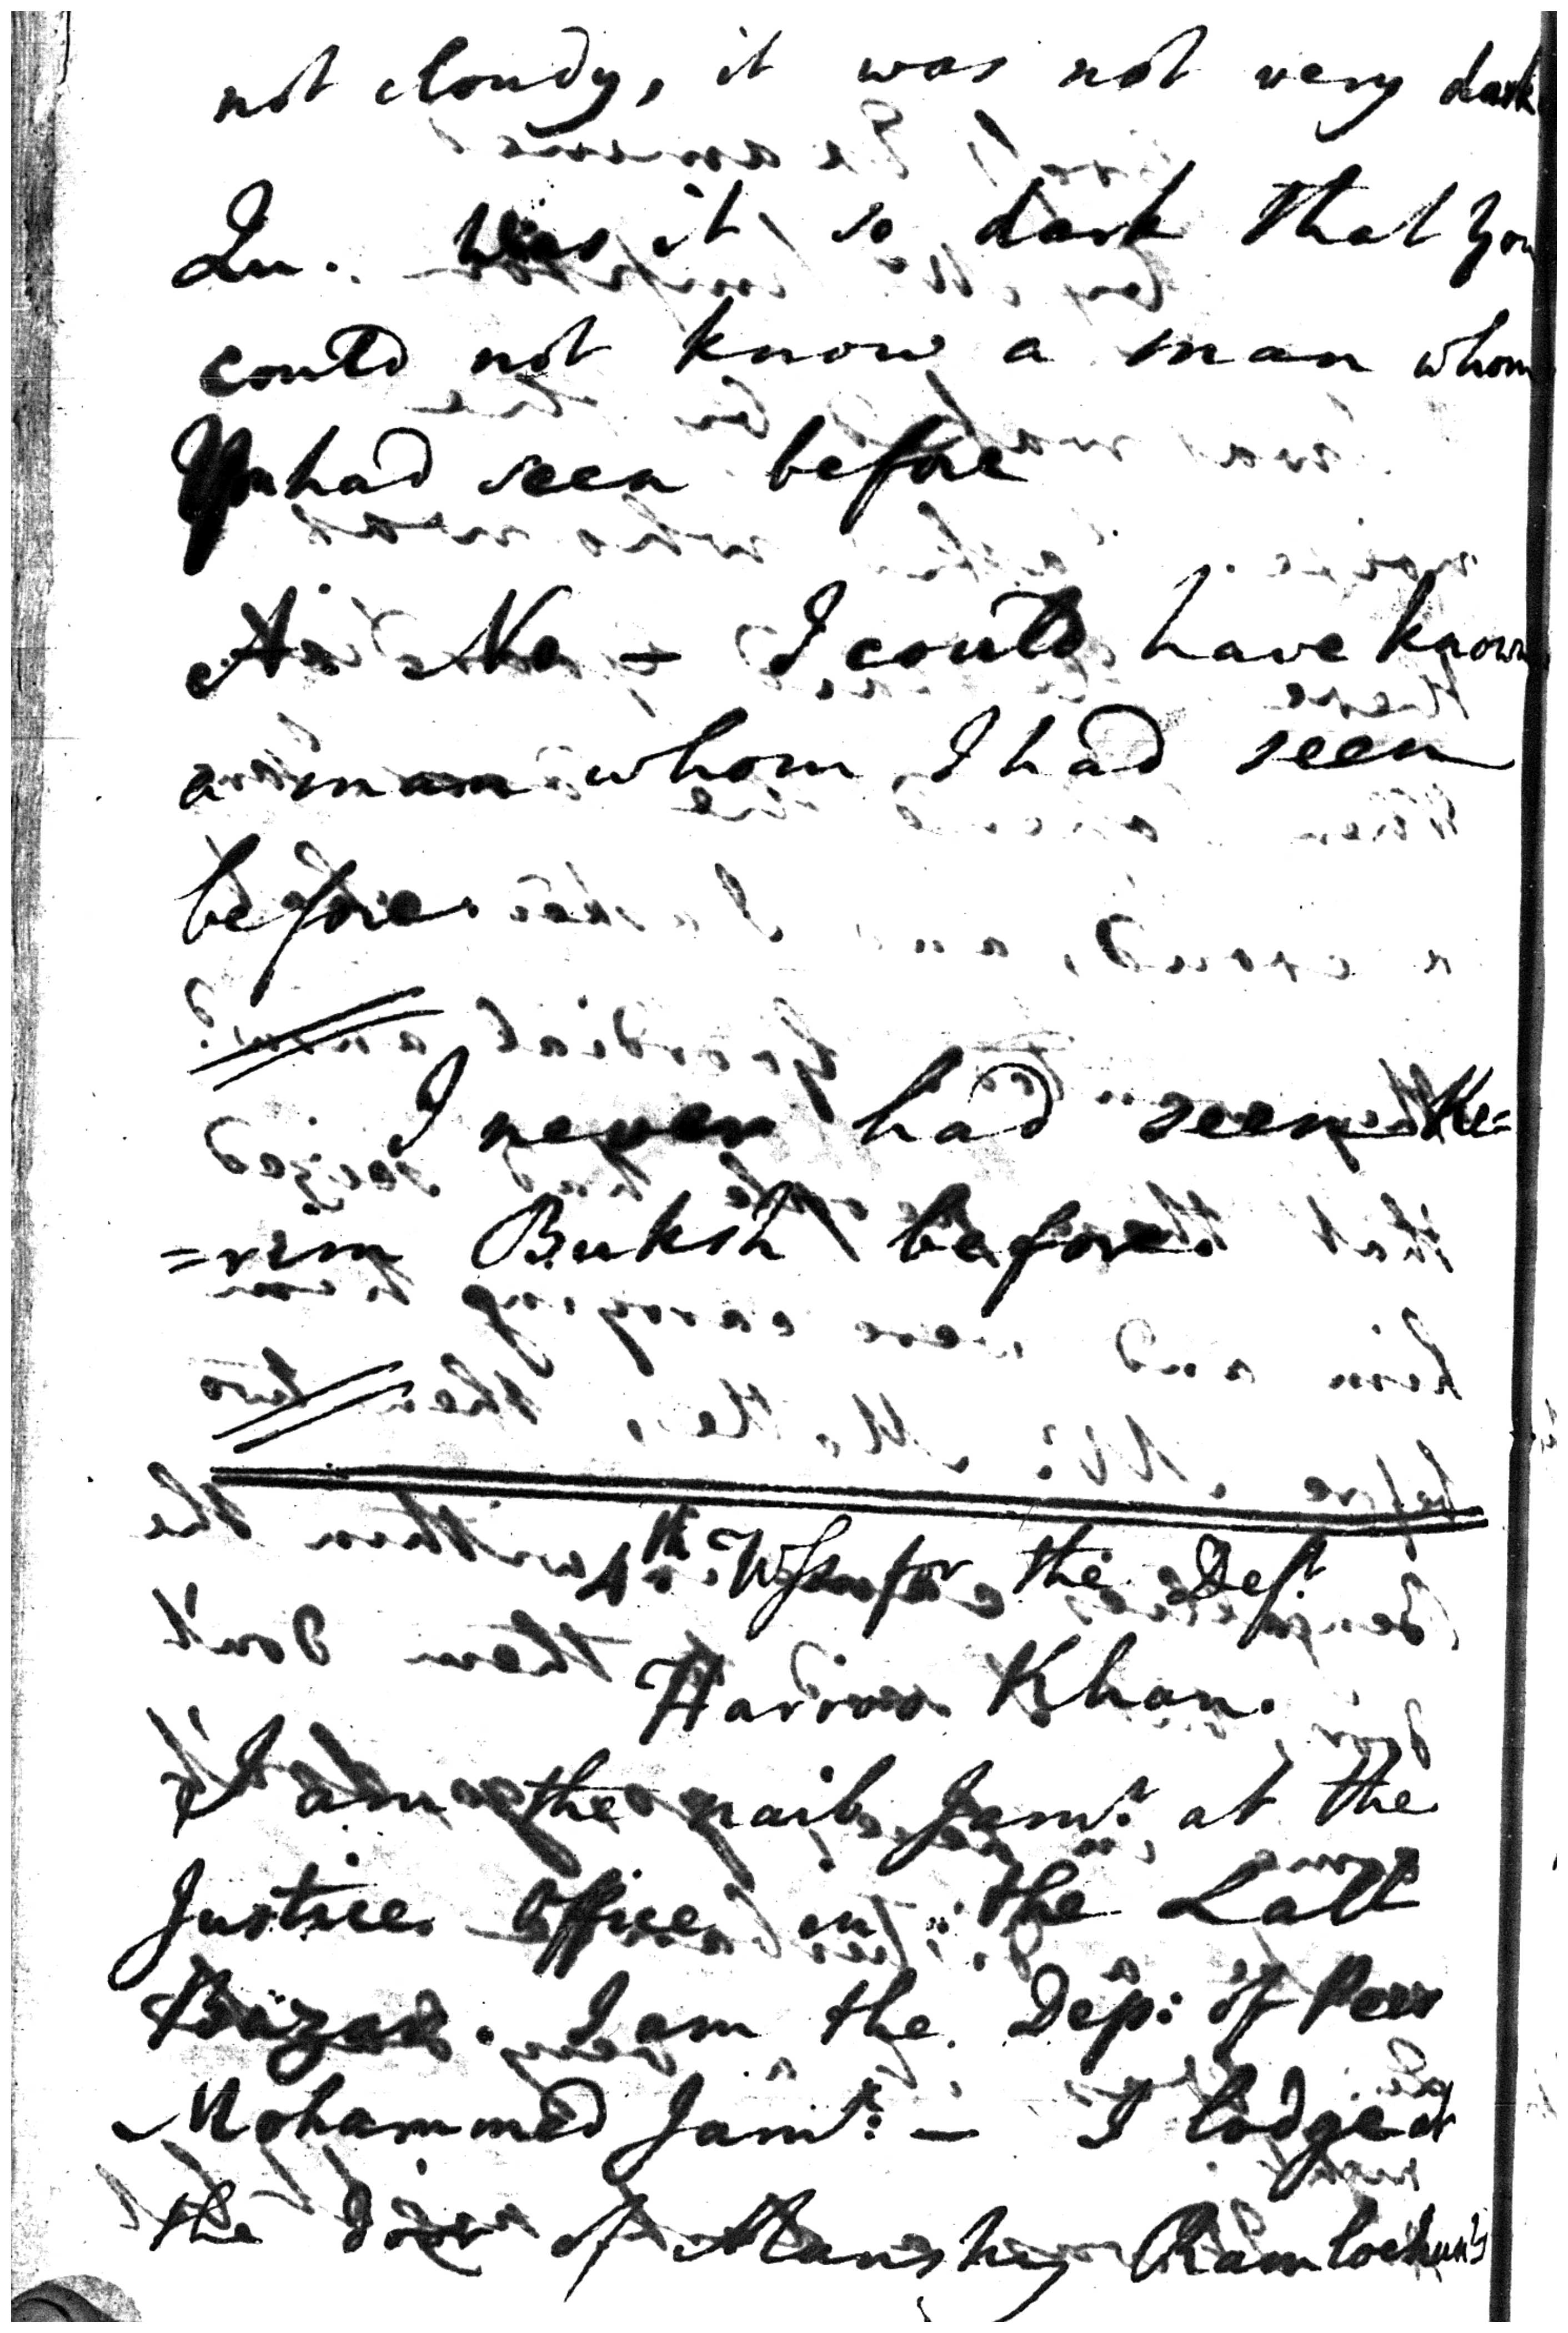 not cloudy, it was not very dark
Qu. Was it so dark that you
could not know a man whom
You had seen before
A. No — I could have known
a man whom I had seen
before.
I never had seen Ke=
=rim Buksh before.
4th Wss for the Deft
Khan.
I am the naib Jamr. at the
Justice Office in the Lall
Bazar. I am the Dep: of Peer
Mohammed Jamr. — I lodge at
the door of Munshey Ramlochun's